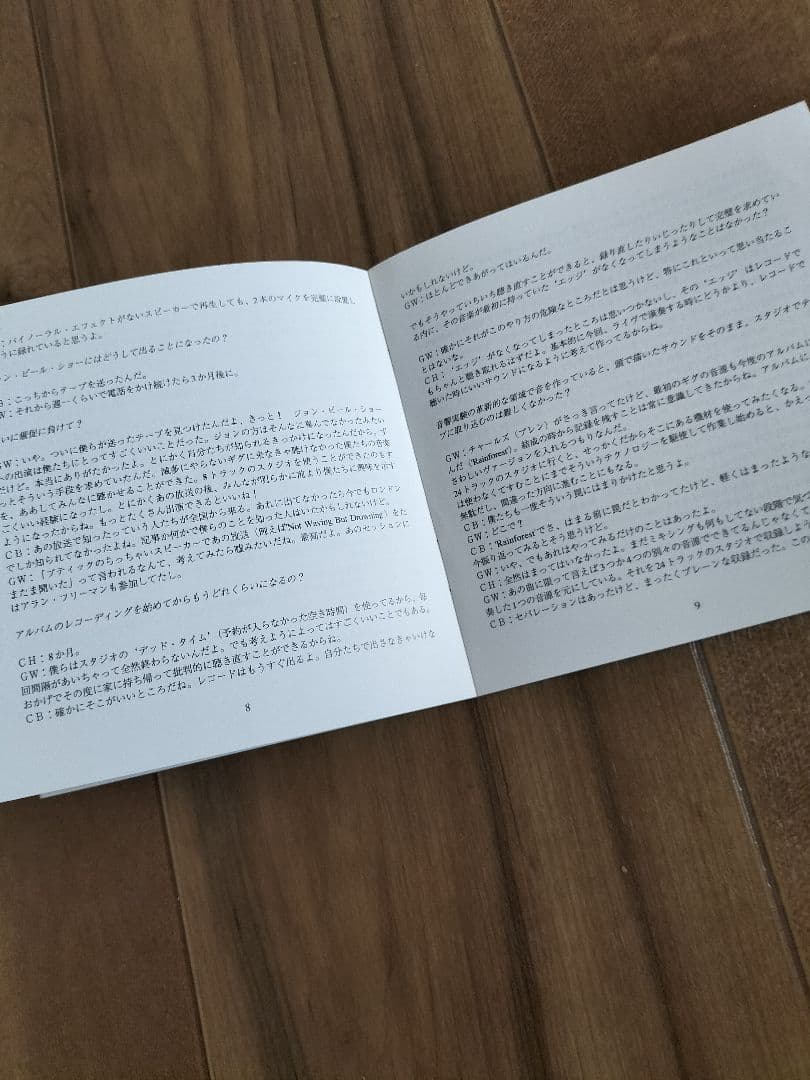 ：バイノーラル・エフェクトがないスピーカーで再生しても、2本のマイクを完璧に設置し
うに録れていると思うよ。
ン・ピール・ショーにはどうして出ることになったの？
B：こっちからテープを送ったんだ。
W：それから週一くらいで電話をかけ続けたら3か月後に。
いに催促に負けて？
GW：いや。ついに僕らが送ったテープを見つけたんだよ、きっと！　ジョン・ピール・ショー
への出演は僕たちにとってすごくいいことだった。ジョンの方はそんなに喜んでなかったみたい
だけど。本当にありがたかったよ。とにかく自分たちが知られるきっかけになったんだから。ず
っとそういう手段を求めていたんだ。滅多にやらないギグに来なきゃ聴けなかった僕たちの音楽
を、ああしてみんなに聴かせることができた。8トラックのスタジオを使うことができたのもす
ごくいい経験になったし。とにかくあの放送の後、みんなが明らかに前より僕たちに興味を示す
ようになったからね。もっとたくさん出演できるといいね！
CB：あの放送で知ったっていう人たちが全国から来る。あれに出てなかったら今でもロンドン
でしか知られてなかったよね。記事か何かで僕らのことを知った人はいたかもしれないけど。
GW：「ブティックのちっちゃいスピーカーであの放送（例えばNot Waving But Drowning）をた
またま聞いた」って言われるなんて、考えてみたら嘘みたいだね。最高だよ。あのセッションに
はアラン・フリーマンも参加してたし。
アルバムのレコーディングを始めてからもうどれくらいになるの？
CH：8か月。
GW：僕らはスタジオの‘デッド・タイム’（予約が入らなかった空き時間）を使ってるから、毎
回間隔があいちゃって全然終わらないんだよ。でも考えようによってはすごくいいことでもある。
おかげでその度に家に持ち帰って批判的に聴き直すことができるからね。
CB：確かにそこがいいところだね。レコードはもうすぐ出るよ。自分たちで出さなきゃいけな
8
いかもしれないけど。
GW：ほとんどできあがってはいるんだ。
でもそうやっていちいち聴き直すことができると、録り直したりいじったりして完璧を求めてい
る内に、その音楽が最初に持っていた‘エッジ’がなくなってしまうようなことはなかった？
GW：確かにそれがこのやり方の危険なところだとは思うけど、特にこれといって思い当たるこ
とはないな。
CH：‘エッジ’がなくなってしまったところは思いつかないし、その‘エッジ’はレコードで
もちゃんと聴き取れるはずだよ。基本的に今回、ライヴで演奏する時にどうかより、レコードで
聴いた時にいいサウンドになるように考えて作ってるからね。
音響実験の革新的な領域で音を作っていると、頭で描いたサウンドをそのまま、スタジオでテ
プに取り込むのは難しくなかった？
GW：チャールズ（ブレン）がさっき言ってたけど、最初のギグの音源も今度のアルバムに
んだ（'Rainforest'）。結成の時から記録を残すことは常に意識してきたからね。アルバムに
さわしいヴァージョンを入れるつもりなんだ。
24トラックのスタジオに行くと、せっかくだからそこにある機材を使ってみたくなる。
は使わなくてすむことにまでそういうテクノロジーを駆使して作業し始めると、かえっ
無駄だし、間違った方向に進むことにもなる。
CB：僕たちも一度そういう罠にはまりかけたと思うよ。
GW：どこで？
CB：'Rainforest'でさ。はまる前に罠だとわかってたけど、軽くはまったような
今振り返ってみるとそう思うけど。
GW：いや、でもあれはやってみるだけのことはあったよ。
CH：全然はまってはいなかったよ。まだミキシングも何もしてない段階で気
GW：あの曲に限って言えば3つか4つの別々の音源でできてるんじゃなくて
奏した1つの音源を元にしている。それを24トラックのスタジオで収録しよう
CB：セパレーションはあったけど、まったくプレーンな収録だった。この
9